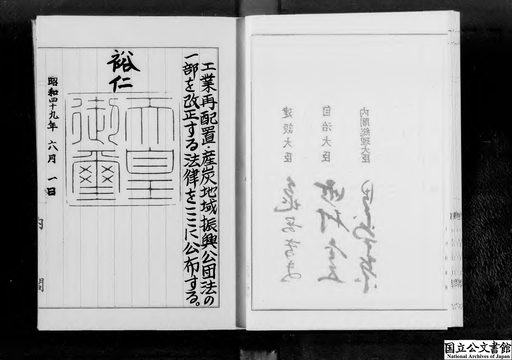 工業再配置・産炭地域振興公団法の
一部を改正する法律をここに公布する。
裕仁
天皇
御璽
昭和四十九年 六月 一日
内
閣
内閣総理大臣
自治大臣
建設大臣
国立公文書館
National Archives of Japan